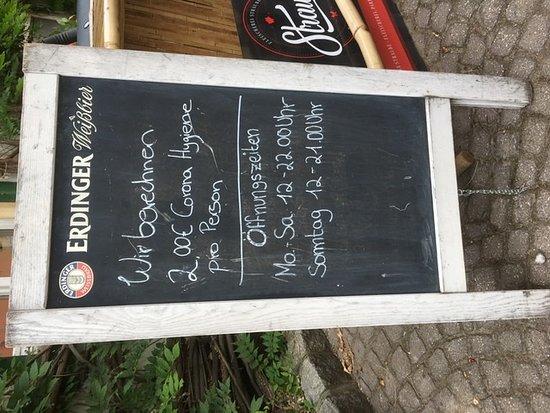 ERDINGER
ERDINGER Weißbier
Wir berechnen
2,00€ Corona Hygiene
pro Person
Öffnungszeiten
Mo.-Sa. 12-22.00 Uhr
Sonntag 12-21.00 Uhr